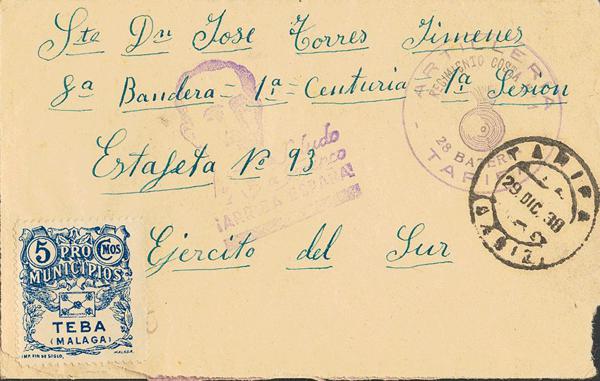 Sto Dn Jose Torres Jimenes
8ª Bandera = 1ª Centuria 1ª Sesion
Estafeta Nº 93
Ejercito del Sur
ARTILLERIA
REGIMIENTO COSTA
28 BATERIA
TARIFA
Saludo
Franco
¡ARRIBA ESPAÑA!
TARIFA
29. DIC. 38
(CADIZ)
5 PRO CMOS
MUNICIPIOS
TEBA
(MALAGA)
IMP. FIN DE SIGLO,
MALAGA.